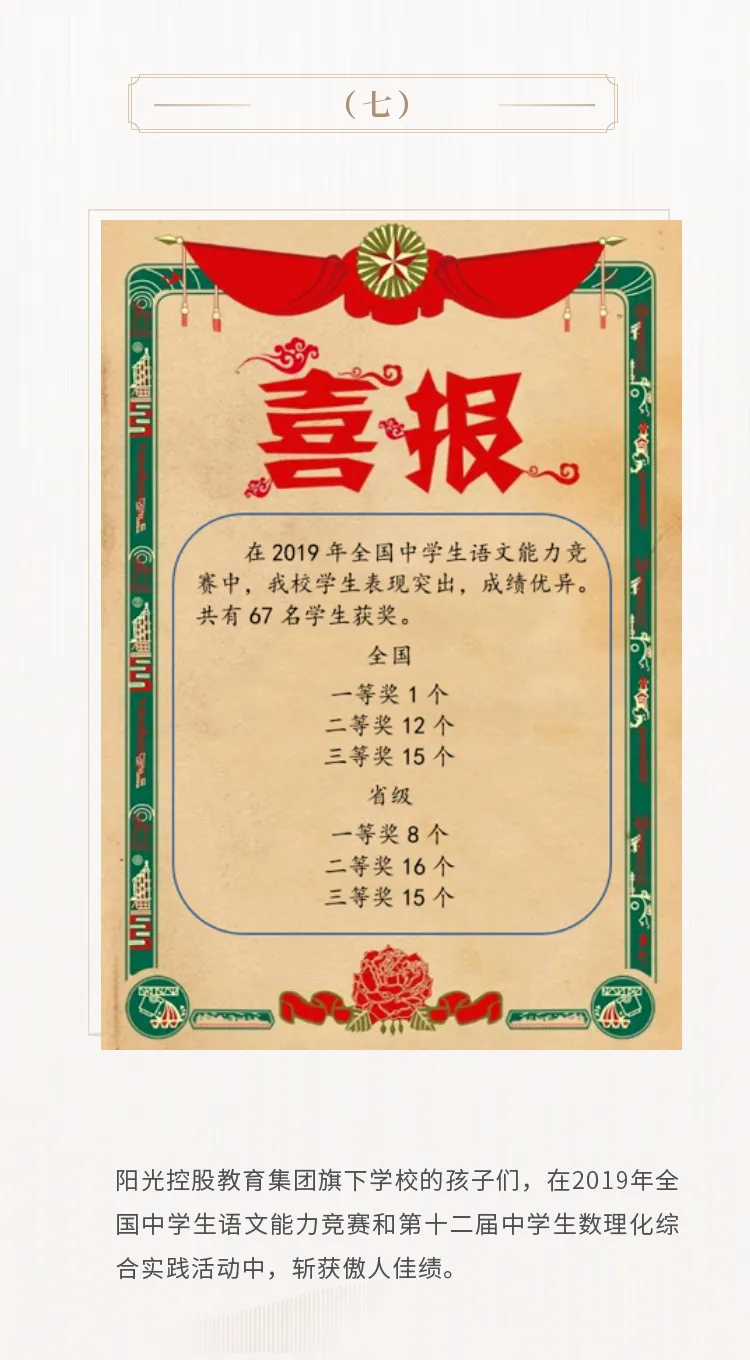 （七）
喜报
在 2019 年全国中学生语文能力竞
赛中，我校学生表现突出，成绩优异。
共有 67 名学生获奖。
全国
一等奖 1 个
二等奖 12 个
三等奖 15 个
省级
一等奖 8 个
二等奖 16 个
三等奖 15 个
阳光控股教育集团旗下学校的孩子们，在2019年全
国中学生语文能力竞赛和第十二届中学生数理化综
合实践活动中，斩获傲人佳绩。